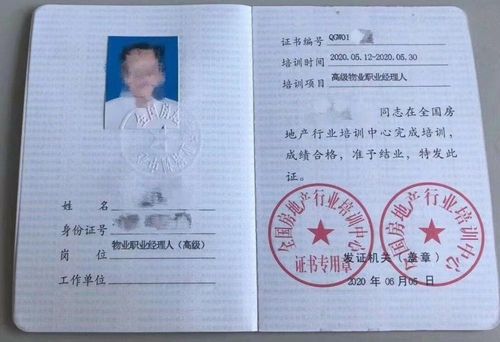 全国房地产行业培训中心
姓 名
身份证号
岗 位 物业职业经理人（高级）
工作单位
证书编号 QGW01
培训时间 2020.05.12-2020.05.30
培训项目 高级物业职业经理人
同志在全国房
地产行业培训中心完成培训，
成绩合格，准予结业，特发此
证。
全国房地产行业培训中心
证书专用章
全国房地产行业培训中心
发证机关（盖章）
2020 年 06 月 05 日